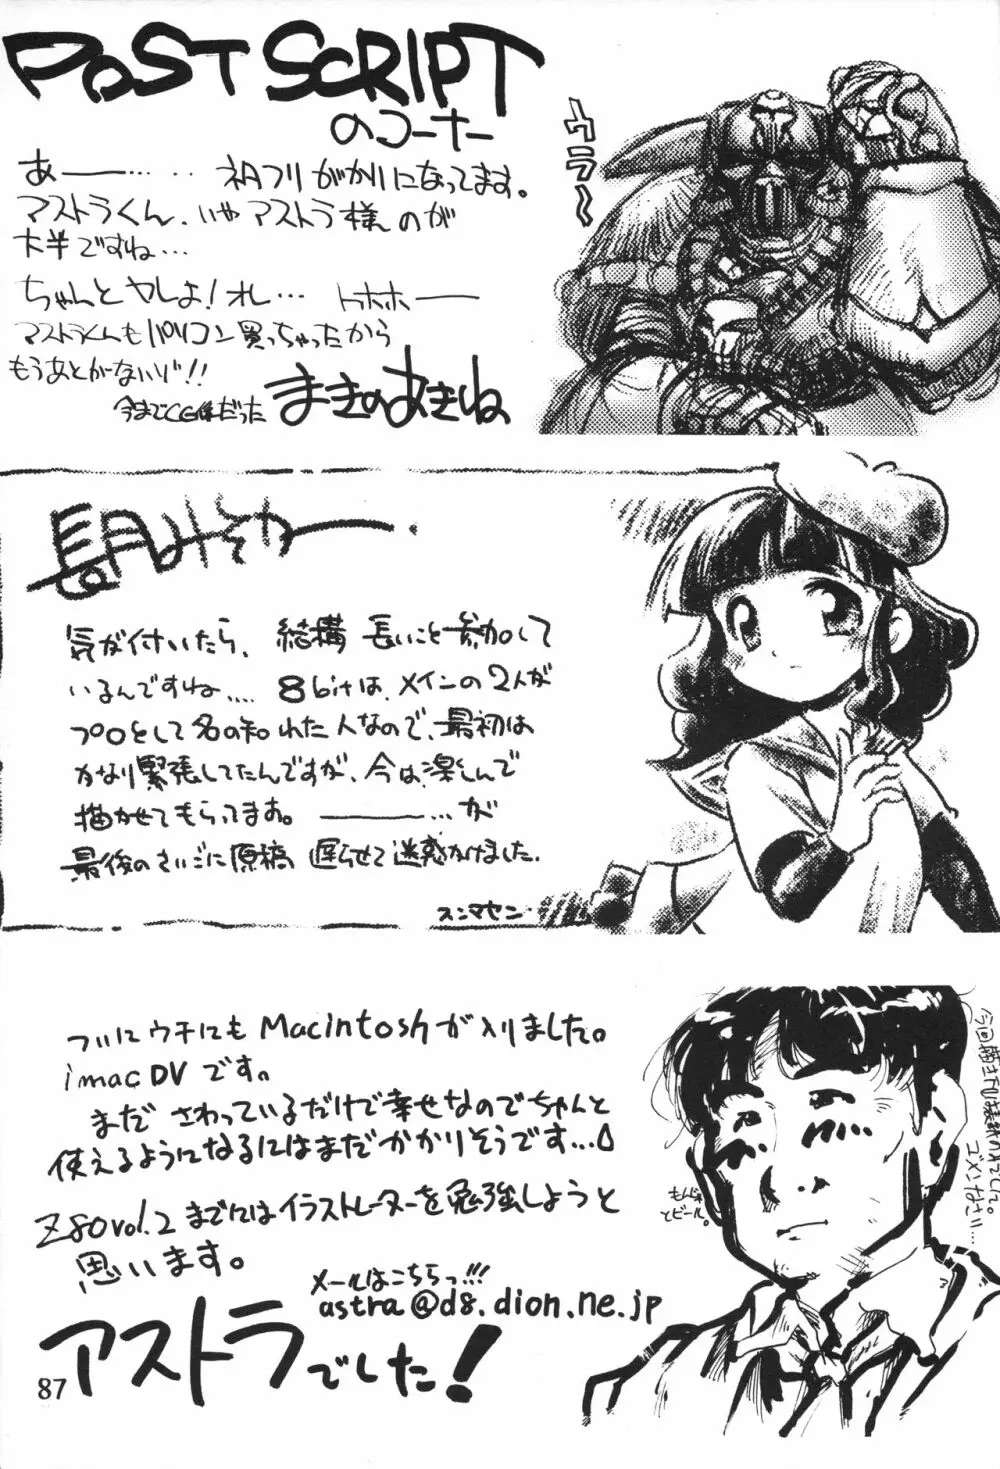 POST SCRIPT
のコーナー
ウラ〜
あ――…‥ 袖フリがかりになってます。
アストラくん、いやアストラ様のが
大半ですね…
ちゃんとヤレよ!オレ… トホホ――
アストラくんもパソコン買っちゃったから
もうあとがないゾ!!
今までCG係だった まきのあきね
長月みそか――.
気が付いたら、結構 長いこと参加して
いるんですね.... 8bitは、メインの2人が
プロとして名の知れた人なので、最初は
かなり緊張してたんですが、今は楽しんで
描かせてもらってます。――…が
最後のさいごに原稿 遅らせて迷惑かけました.
スンマセン
ついにウチにも Macintosh が入りました。
imac DV です。
まだ さわっているだけで幸せなのでちゃんと
使えるようになるにはまだかかりそうです…
Z80 vol.2 までにはイラストレーターを勉強しようと
思います。
メールはこちらっ!!!
astra@d8.dion.ne.jp
アストラでした!
もんじゃ
とビール。
ゴメンなさい…
87